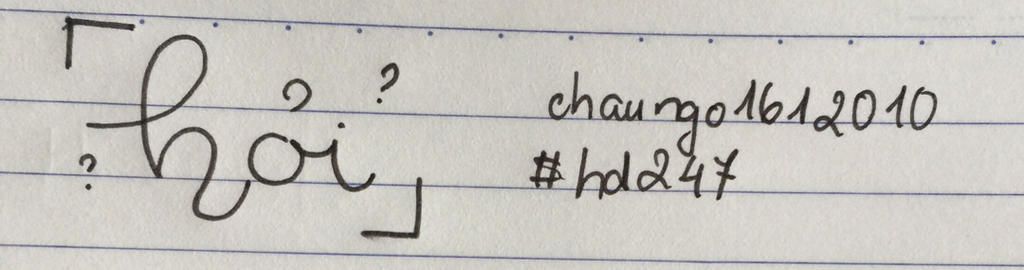 「hỏi」
? ?
chaungo1612010
#hd247